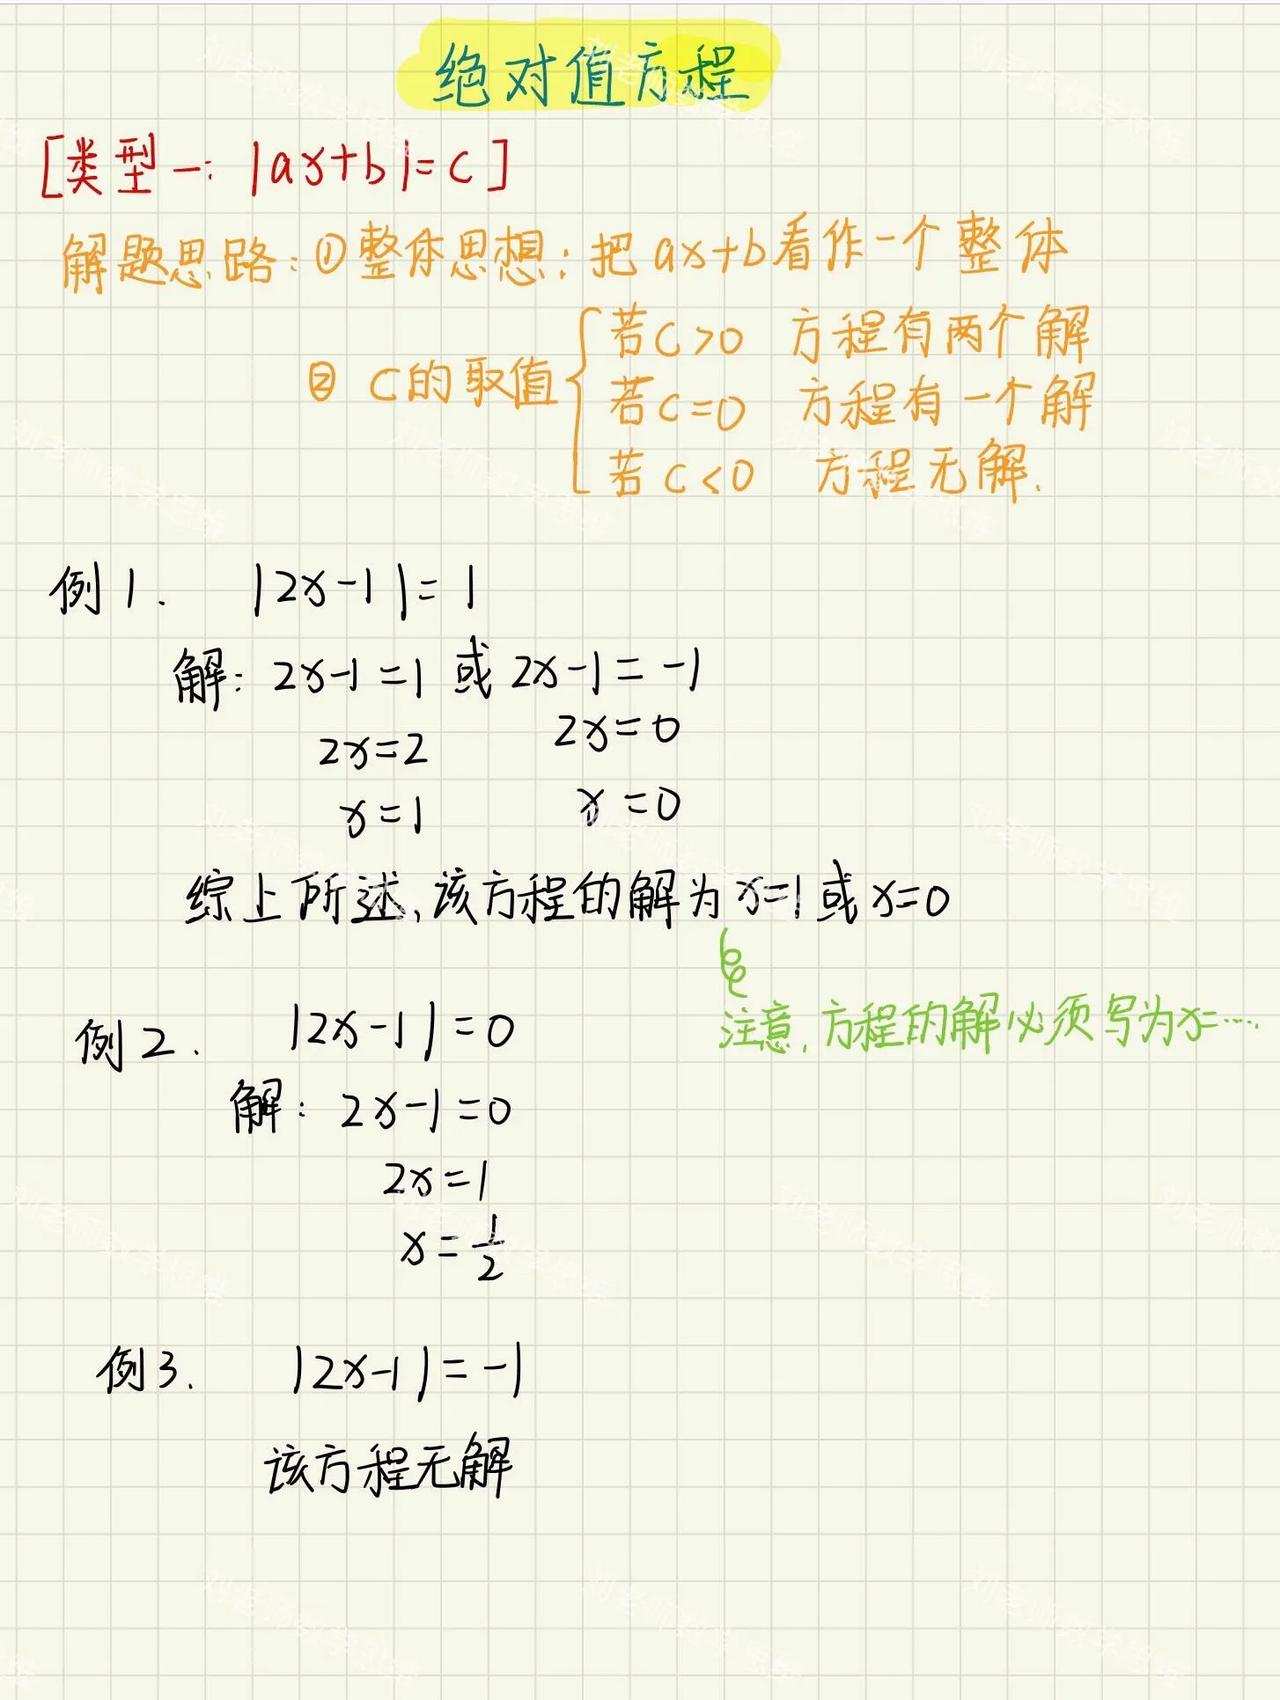 绝对值方程
[类型一: |ax+b|=c]
解题思路: ①整体思想: 把ax+b看作一个整体
② C的取值 { 若C>0 方程有两个解
若C=0 方程有一个解
若C<0 方程无解.
例1. |2x-1|=1
解: 2x-1=1 或 2x-1=-1
2x=2 2x=0
x=1 x=0
综上所述,该方程的解为x=1或x=0
注意,方程的解必须写为x=....
例2. |2x-1|=0
解: 2x-1=0
2x=1
x=1/2
例3. |2x-1|=-1
该方程无解